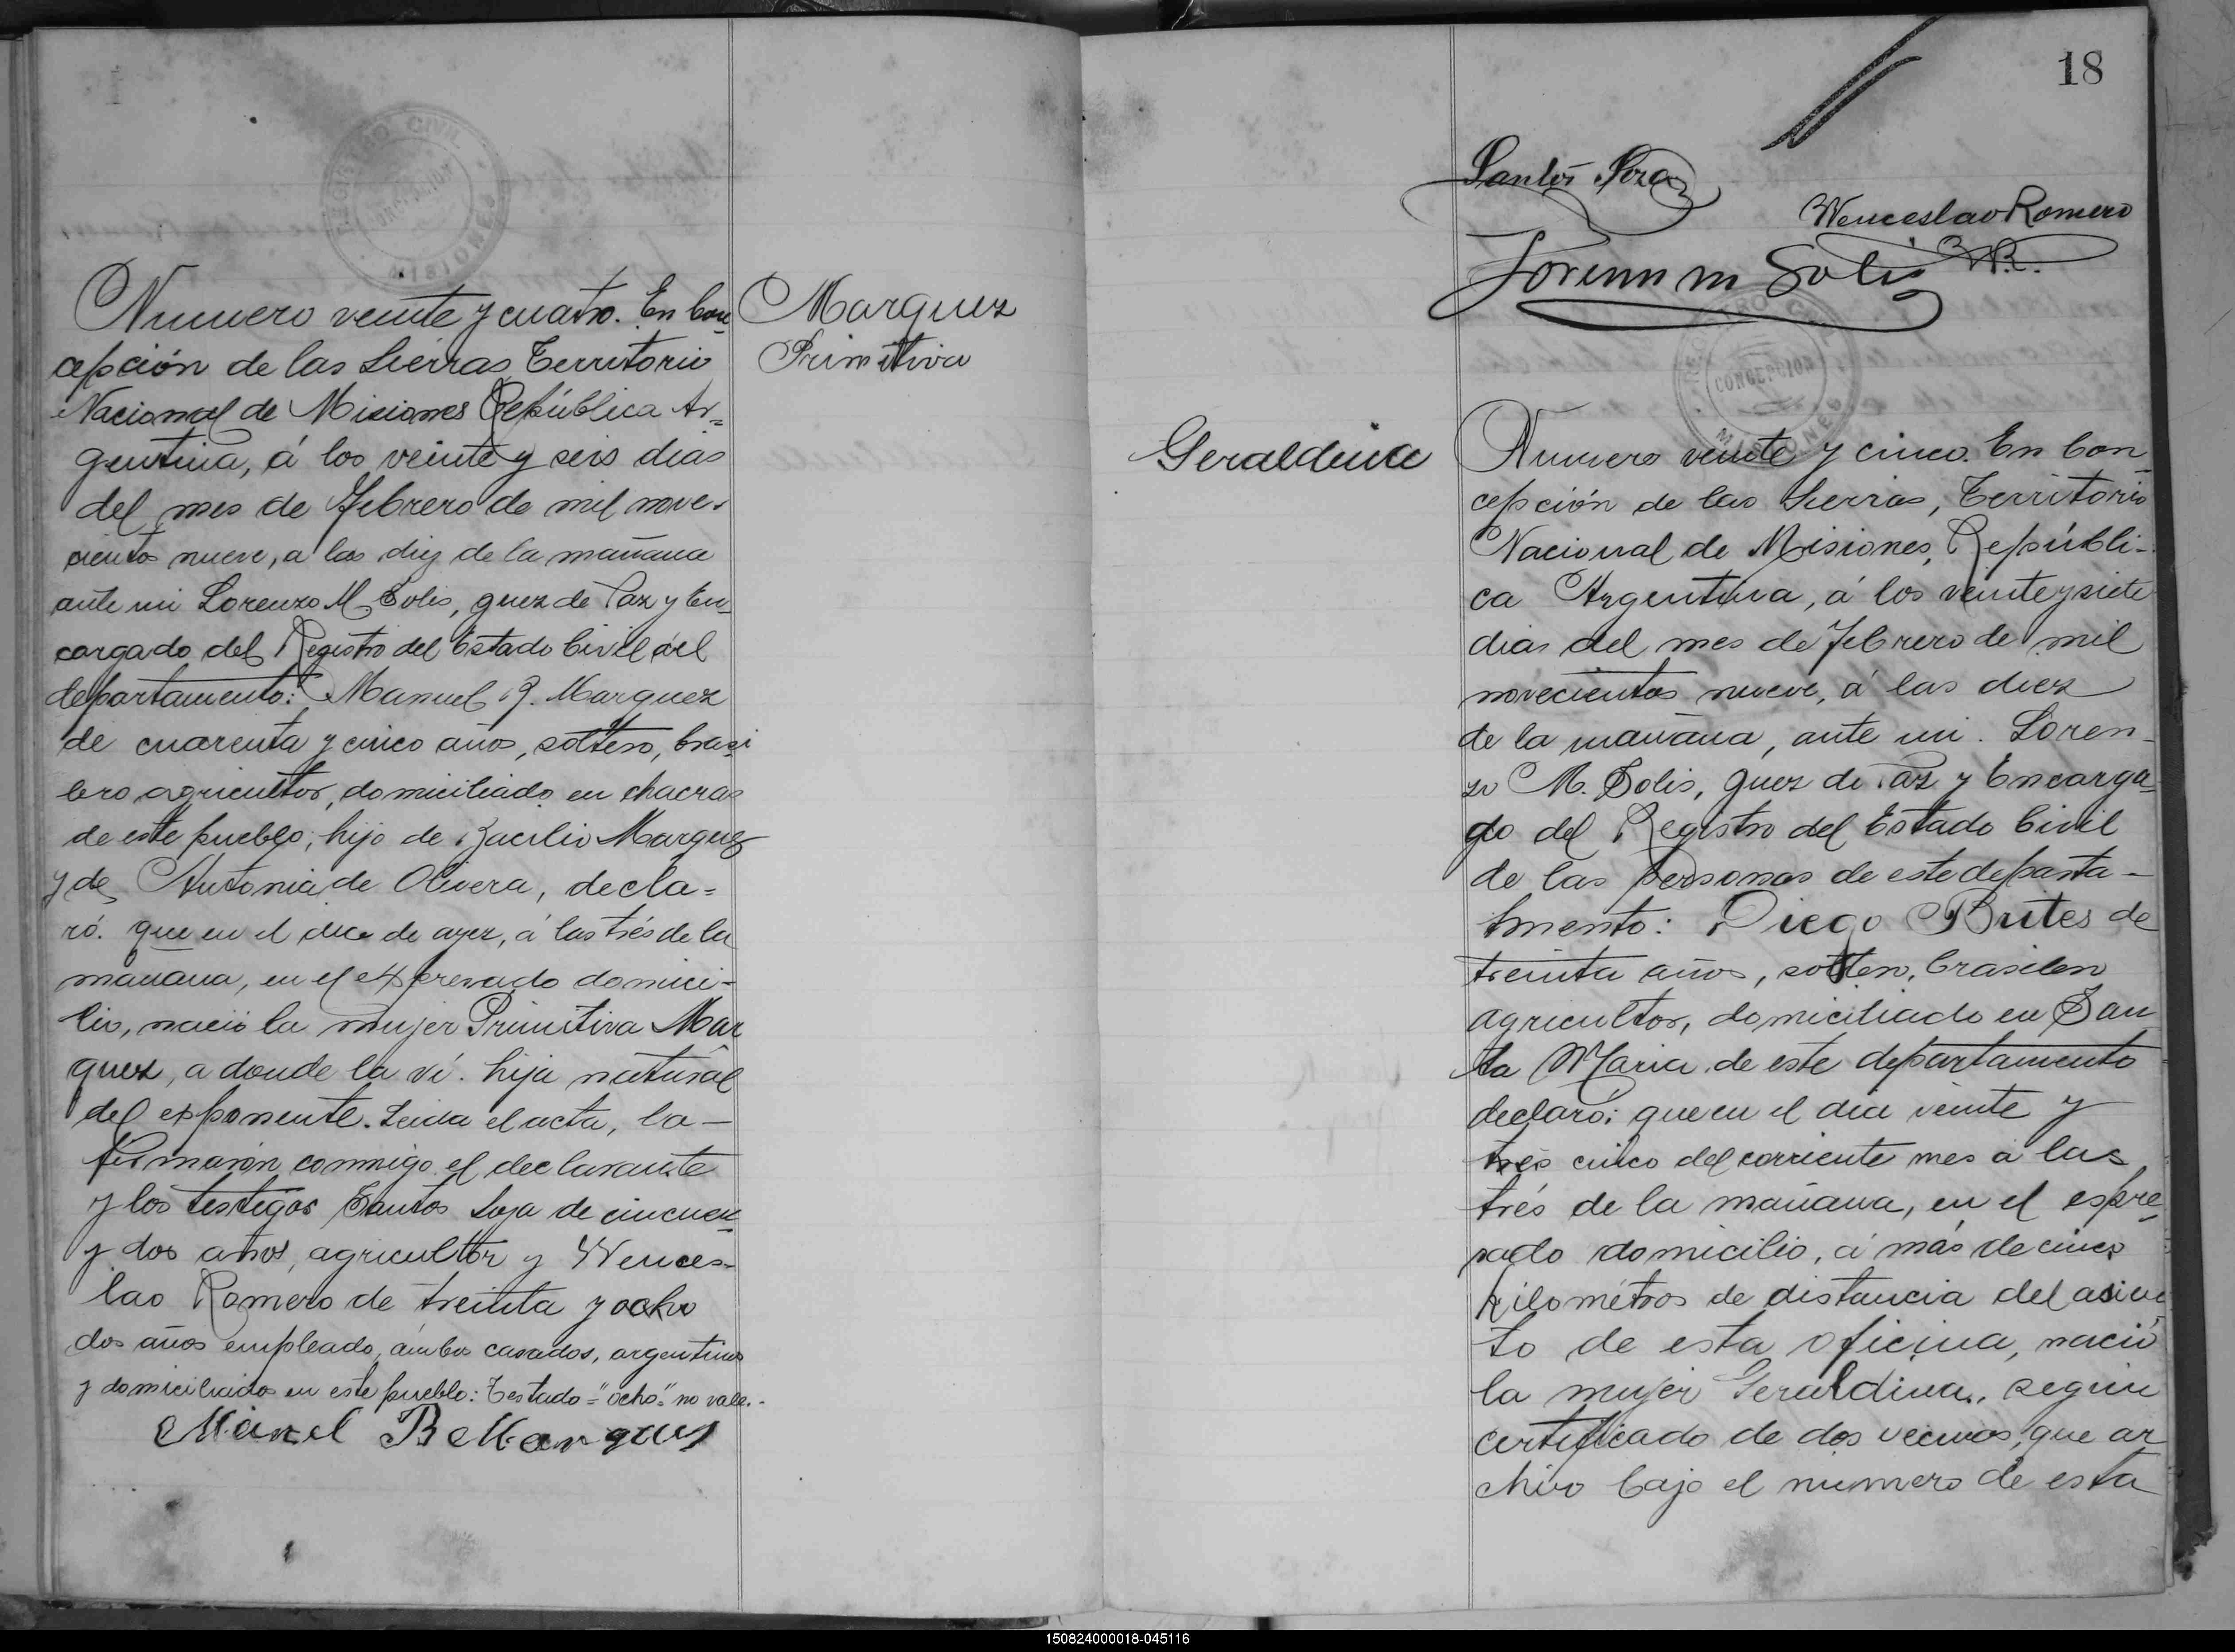 REGISTRO CIVIL
CONCEPCION
MISIONES
Marquez
Primitiva
Numero veinte y cuatro. En Con-
cepción de las Sierras Territorio
Nacional de Misiones República Ar=
gentina, á los veinte y seis dias
del mes de Febrero de mil nove-
cientos nueve, a las diez de la mañana
ante mi Lorenzo M Solis, Juez de Paz y En-
cargado del Registro del Estado Civil del
departamento: Manuel B. Marquez
de cuarenta y cinco años, soltero, brasi
lero agricultor, domiciliado en chacras
de este pueblo, hijo de Bacilio Marquez
y de Antonia de Olivera, decla=
ró. que en el dia de ayer, á las trés de la
mañana, en el expresado domici-
lio, nació la mujer Primitiva Mar
quez, a donde la ví. hija natural
del exponente. Leida el acta, la-
firmaron conmigo el declarante
y los testigos Santos Soza de cincuen-
y dos años, agricultor y Wences-
lao Romero de treinta y ocho
dos años empleado, ambos casados, argentinos
y domiciliados en este pueblo: Testado="ocho" no vale.-
Manel B Marques
18
Santos Soza
Wenceslao Romero
W.R.
Lorenzo M Solis
REGISTRO CIVIL
CONCEPCION
MISIONES
Geraldina
Numero veinte y cinco. En Con-
cepción de las Sierras, Territorio
Nacional de Misiones, Repúbli-
ca Argentina, á los veinte y siete
dias del mes de Febrero de mil
novecientos nueve, á las diez
de la mañana, ante mi. Loren-
zo M. Solis, Juez de Paz y Encarga-
do del Registro del Estado Civil
de las personas de este departa-
tmento: Diego Brites de
treinta años, soltero, brasilero
agricultor, domiciliado en San
ta Maria de este departamento
declaró: que en el dia veinte y
trés cinco del corriente mes á las
trés de la mañana, en el espre-
sado domicilio, á más de cinco
kilométros de distancia del asien-
to de esta oficina, nació
la mujer Geraldina, según
certificado de dos vecinos, que ar
chivo bajo el numero de esta
150824000018-045116